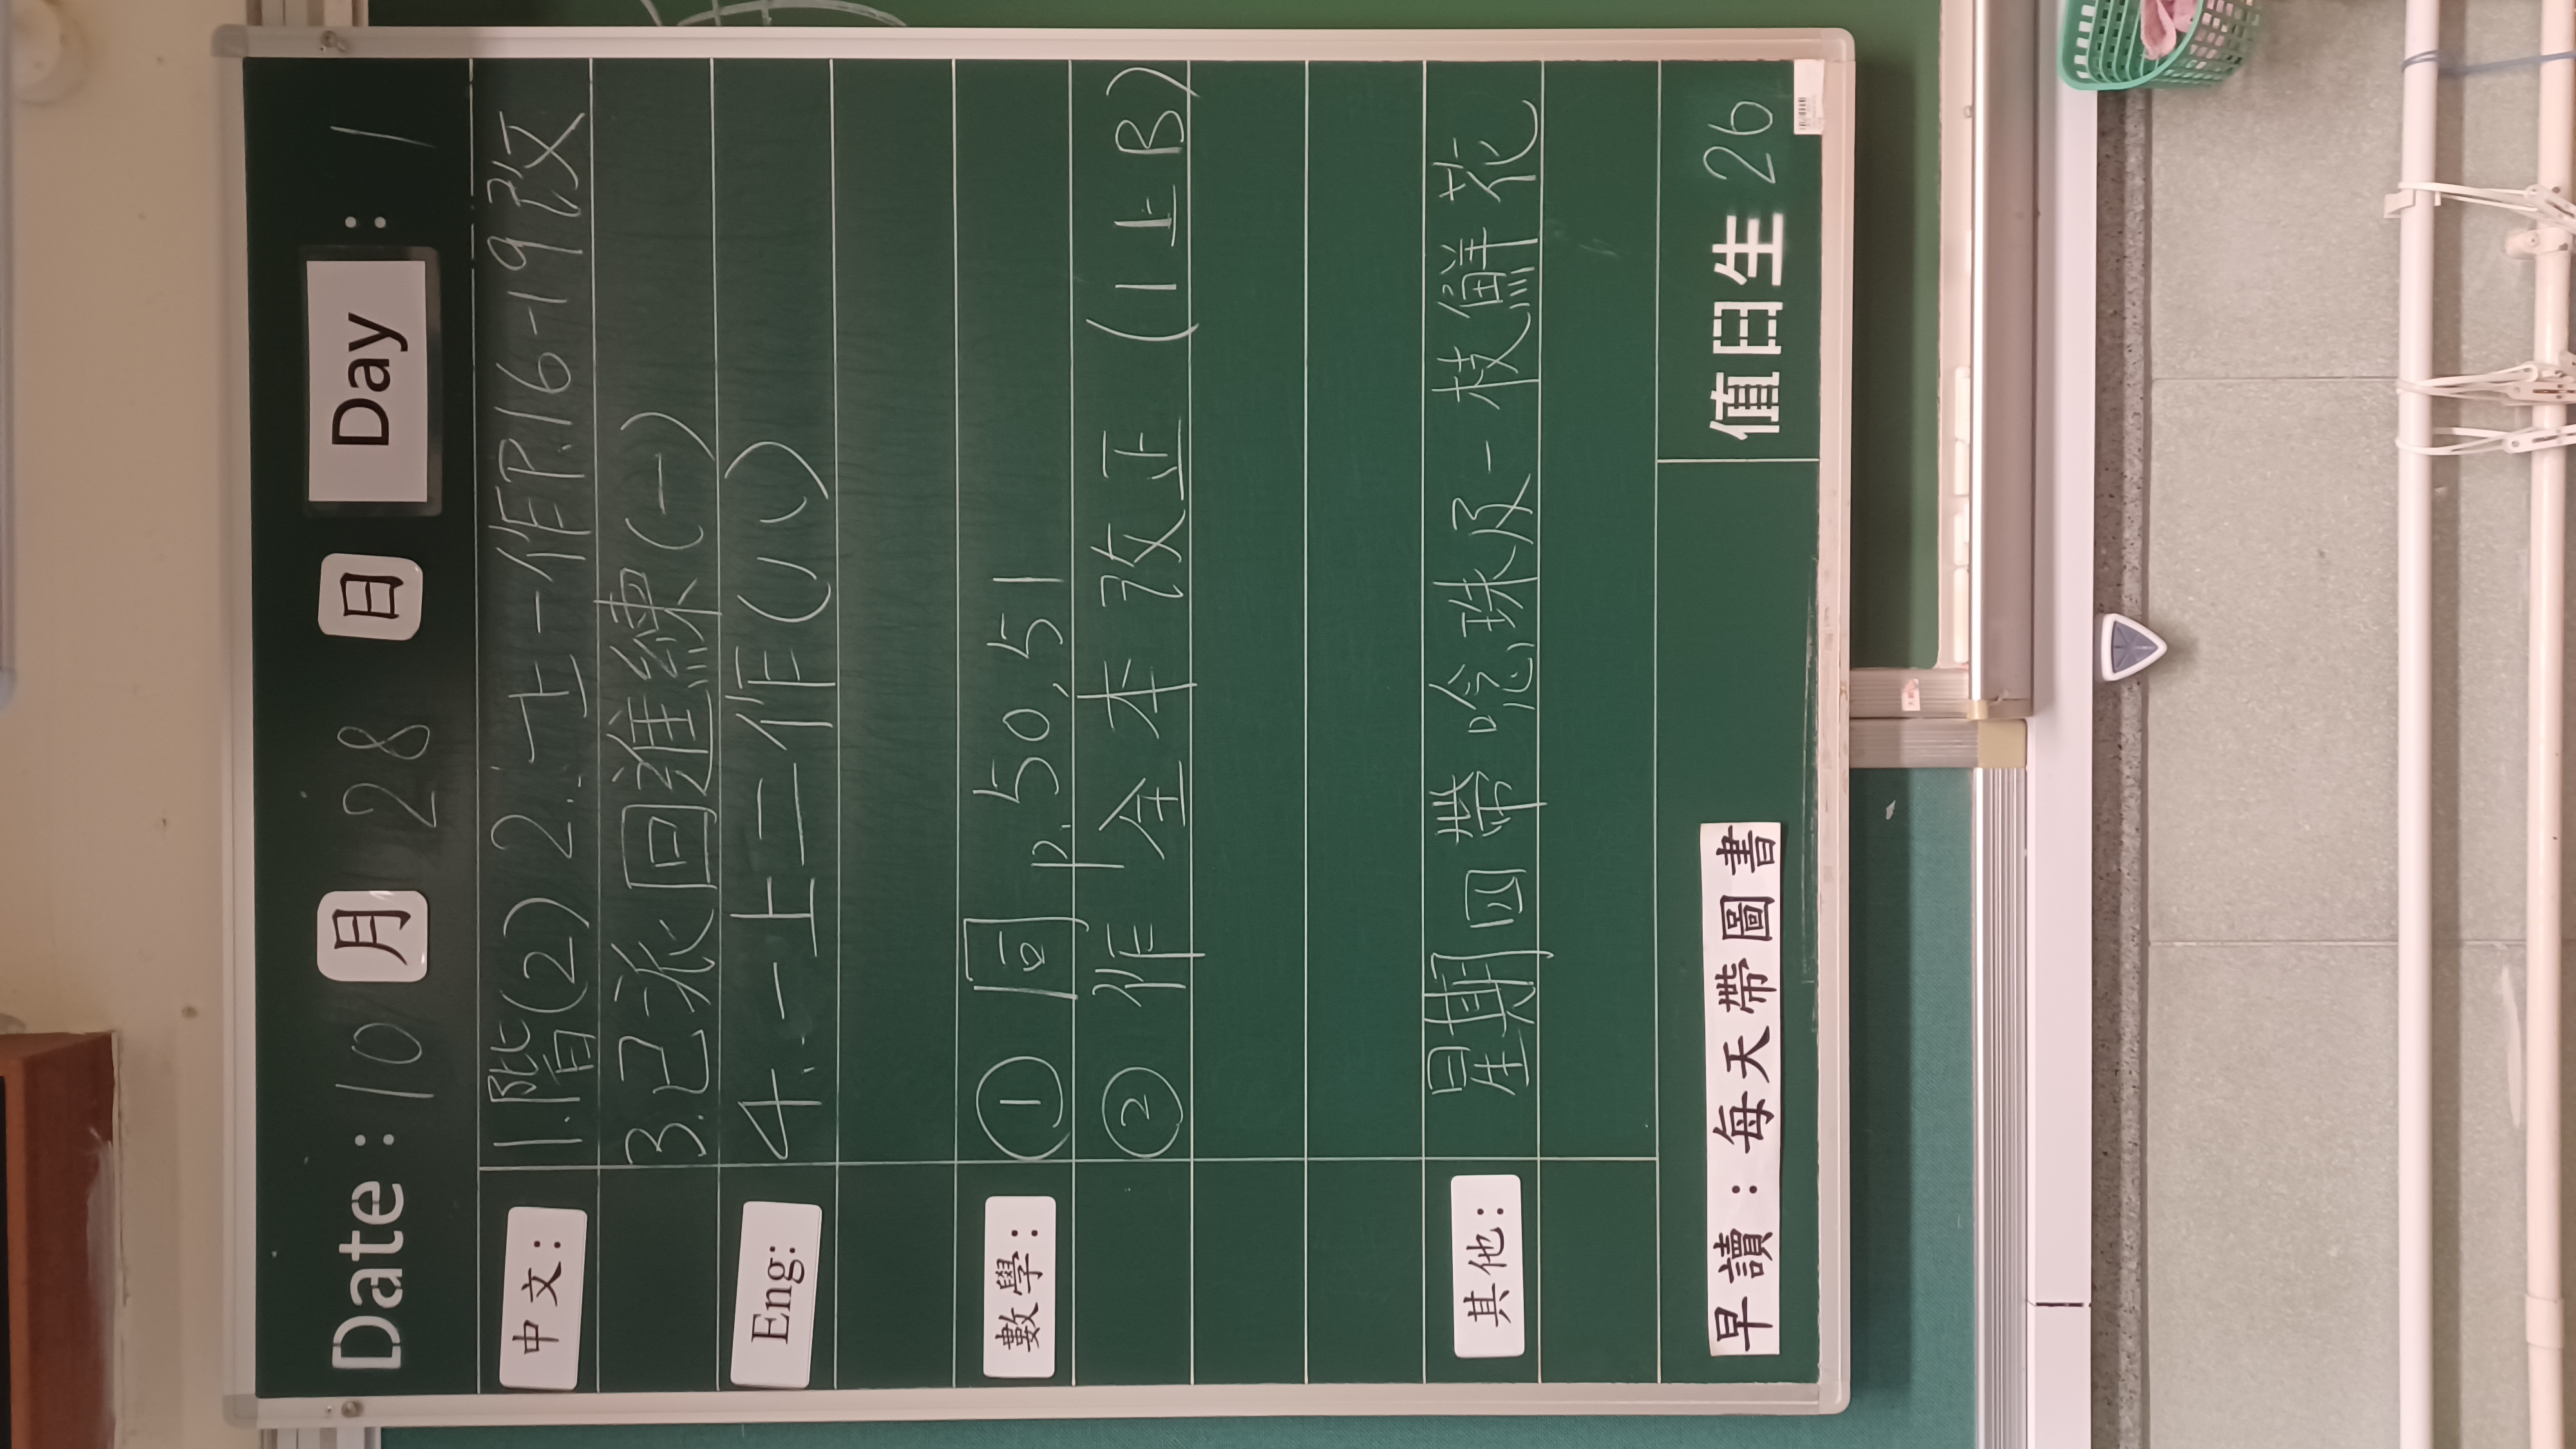 Date : 10 月 28 日 Day : 1
中文: 1.階(2) 2.一上一作P.16-19改
3.已派回進練(一)
Eng: 4.一上二作(八)
數學: ① 回 p.50,51
② 作 全本改正 (1上B)
其他: 星期四帶唸珠及一枝鮮花
早讀:每天帶圖書 值日生 26